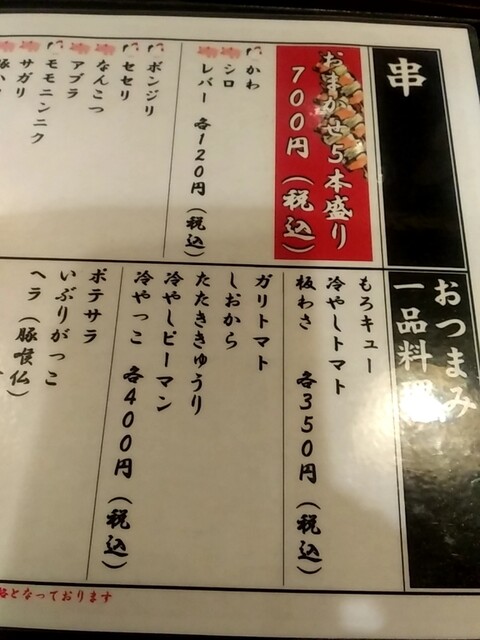 串
おまかせ5本盛り
700円（税込）
かわ
シロ
レバー 各120円（税込）
ボンジリ
セセリ
なんこつ
アブラ
モモニンニク
サガリ
おつまみ
一品料理
もろキュー
冷やしトマト
板わさ 各350円（税込）
ガリトマト
しおから
たたききゅうり
冷やしピーマン
冷やっこ 各400円（税込）
ポテサラ
いぶりがっこ
ヘラ（豚喉仏）
格となっております